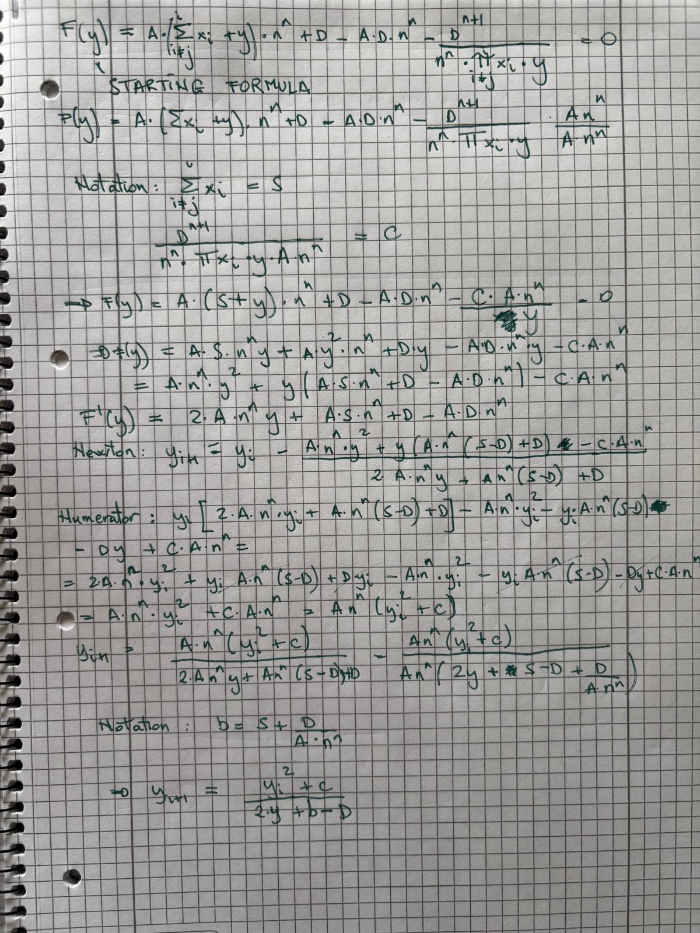 F(y) = A·(∑_{i≠j}^{i} x_i + y)·n^n + D − A·D·n^n − D^{n+1} / (n^n · π_{i≠j} x_i · y) = 0
STARTING FORMULA
F(y) = A·(∑x_i + y)·n^n + D − A·D·n^n − D^{n+1} / (n^n · πx_i · y) · An^n / A·n^n
Notation: ∑_{i≠j} x_i = S
D^{n+1} / (n^n · πx_i · y · A·n^n) = C
→ F(y) = A·(S+y)·n^n + D − A·D·n^n − C·A·n^n / y = 0
→ F(y) = A·S·n^n y + A·y^2·n^n + D·y − A·D·n^n·y − C·A·n^n
= A·n^n·y^2 + y(A·S·n^n + D − A·D·n^n) − C·A·n^n
F'(y) = 2·A·n^n y + A·S·n^n + D − A·D·n^n
Newton: y_{i+1} = y_i − (A·n^n·y^2 + y(A·n^n (S−D) + D) − C·A·n^n) / (2A·n^n y + An^n (S−D) + D)
Numerator: y_i [2·A·n^n·y_i + A·n^n (S−D) + D] − A·n^n·y_i^2 − y_i A·n^n (S−D)
− Dy + C·A·n^n =
= 2A·n^n·y_i^2 + y_i A·n^n (S−D) + Dy_i − An^n·y_i^2 − y_i A·n^n (S−D) − Dy + C·A·n^n
= A·n^n·y_i^2 + C·A·n^n = An^n (y_i^2 + C)
y_{i+1} = A·n^n (y_i^2 + C) / (2·An^n y + An^n (S−D) + D) = An^n (y_i^2 + C) / (An^n (2y + S−D + D / A·n^n))
Notation: b = S + D / A·n^n
→ y_{i+1} = (y_i^2 + C) / (2·y + b − D)